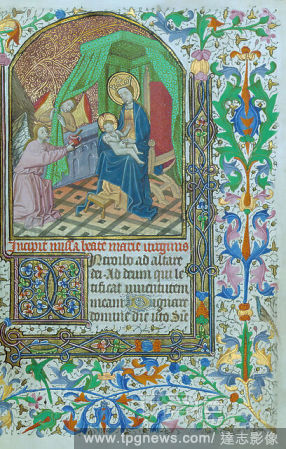 Incipit missa beate marie virginis
Introibo ad altare
dei Ad deum qui le
tificat iuventutem
meam Dignare
domine die isto Sine
www.tpgnews.com/ 達志影像